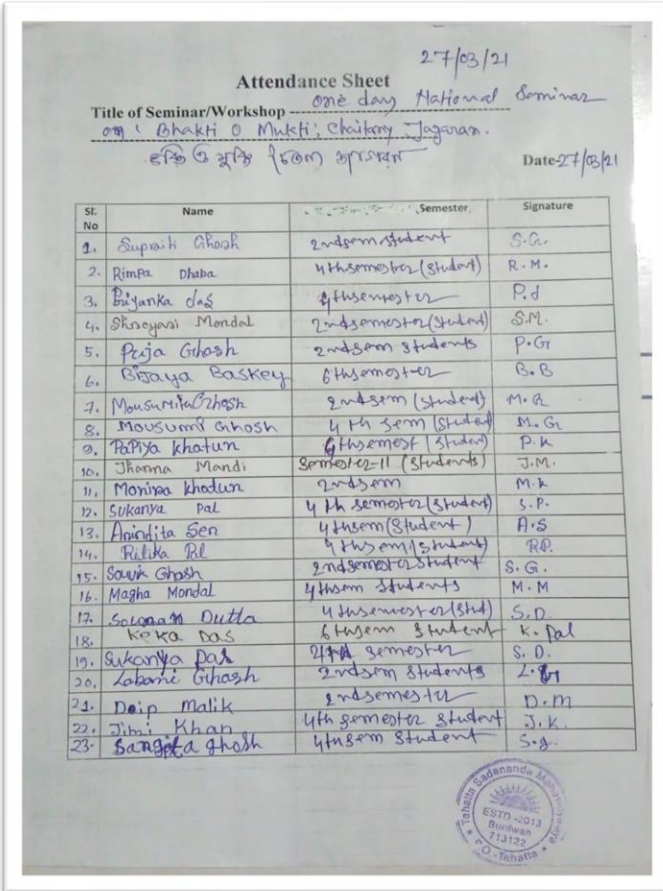 27/03/21
Attendance Sheet
Title of Seminar/Workshop one day National Seminar
on ' Bhakti O Mukti; Chaitany Jagaran.
ভক্তি ও মুক্তি
Date-27/03/21
SL. No Name Semester Signature
1. Supraiti Ghosh 2ndsem student S.G.
2. Rimpa Dhaba 4thsemester (Student) R.M.
3. Priyanka das 4thsemester P.d
4. Shreyasi Mondal 2ndsemester (Student) S.M.
5. Puja Ghosh 2ndsem students P.G
6. Bijaya Baskey 6thsemester B.B
7. Mousumita Ghosh 2ndsem (Student) M.G
8. Mousumi Ghosh 4th sem (Student) M.G
9. Papiya khatun (Student) P.k
10. Jharna Mandi Semester-II (Students) J.M.
11. Monira khatun 2ndsem M.k
12. Sukanya Pal 4th semester (Student) S.P.
13. Anindita Sen 4thsem (Student) A.S
14. Ritika Pal 4thsem (Student) RP.
15. Souvik Ghosh 2ndsemester Student S.G.
16. Magha Mondal 4thsem students M.M
17. Dutta 4thsemester (Stud) S.D.
18. Keka Das 6thsem Student K.Pal
19. Sukanya Das 4th semester S.D.
20. Labani Ghosh 2ndsem students
21. Deip Malik 2ndsemester D.M
22. Jimi Khan 4th semester student J.K.
23. Sangita ghosh 4thsem student S.g.
Tehatta Sadananda Mahavidyalaya
ESTD.-2013
Burdwan
713122
P.O.-Tehatta